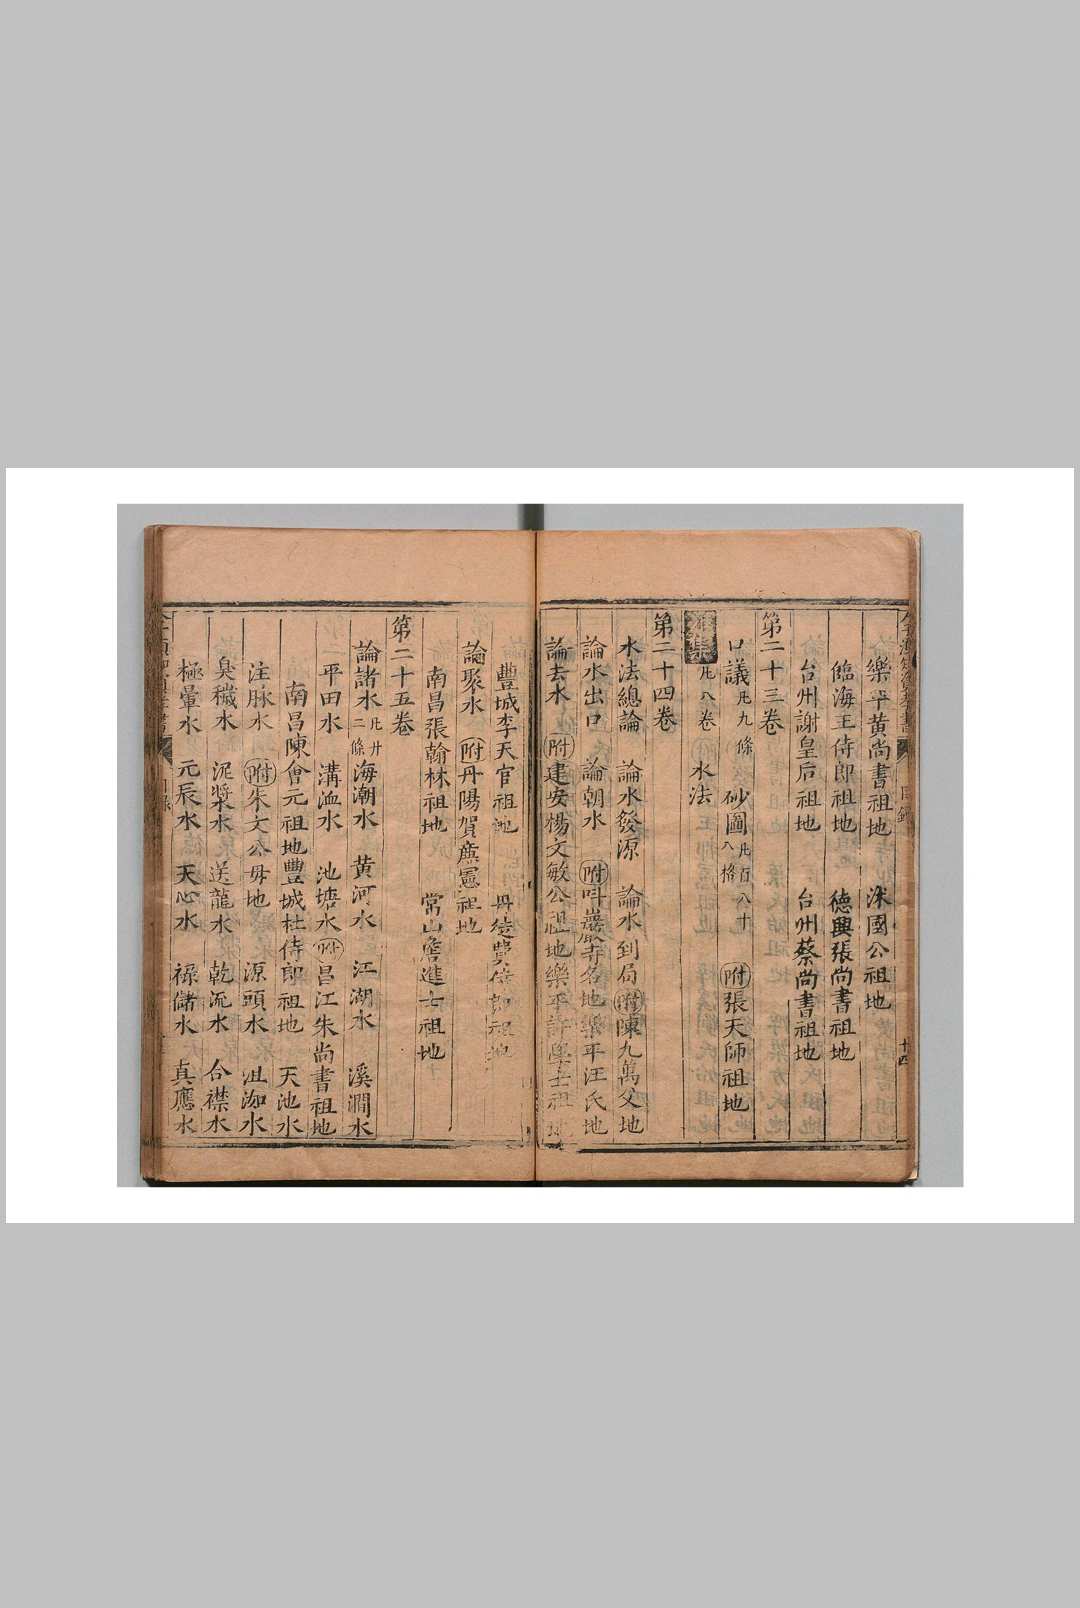 樂平黄尚書祖地 洙國公祖地
臨海王侍郎祖地 德興張尚書祖地
台州謝皇后祖地 台州蔡尚書祖地
第二十三卷
口議 凡九條 砂圖 凡百八十八格 附 張天師祖地
集 凡八卷 水法
第二十四卷
水法總論 論水發源 論水到局 附 陳九萬父地
論水出口 論朝水 附 呌巖寺名地 樂平汪氏地
論去水 附 建安楊文敏公祖地 樂平許學士祖
豐城李天官祖地 丹徒費侍郎祖地
論聚水 附 丹陽賀廉憲祖地
南昌張翰林祖地 常山詹進士祖地
第二十五卷
論諸水 凡廿二條 海潮水 黄河水 江湖水 溪澗水
平田水 溝洫水 池塘水 附 昌江朱尚書祖地
南昌陳會元祖地 豐城杜侍郎祖地 天池水
注脉水 附 朱文公母地 源頭水 沮洳水
臭穢水 泥漿水 送龍水 乾流水 合襟水
極暈水 元辰水 天心水 祿儲水 真應水
目錄
十四